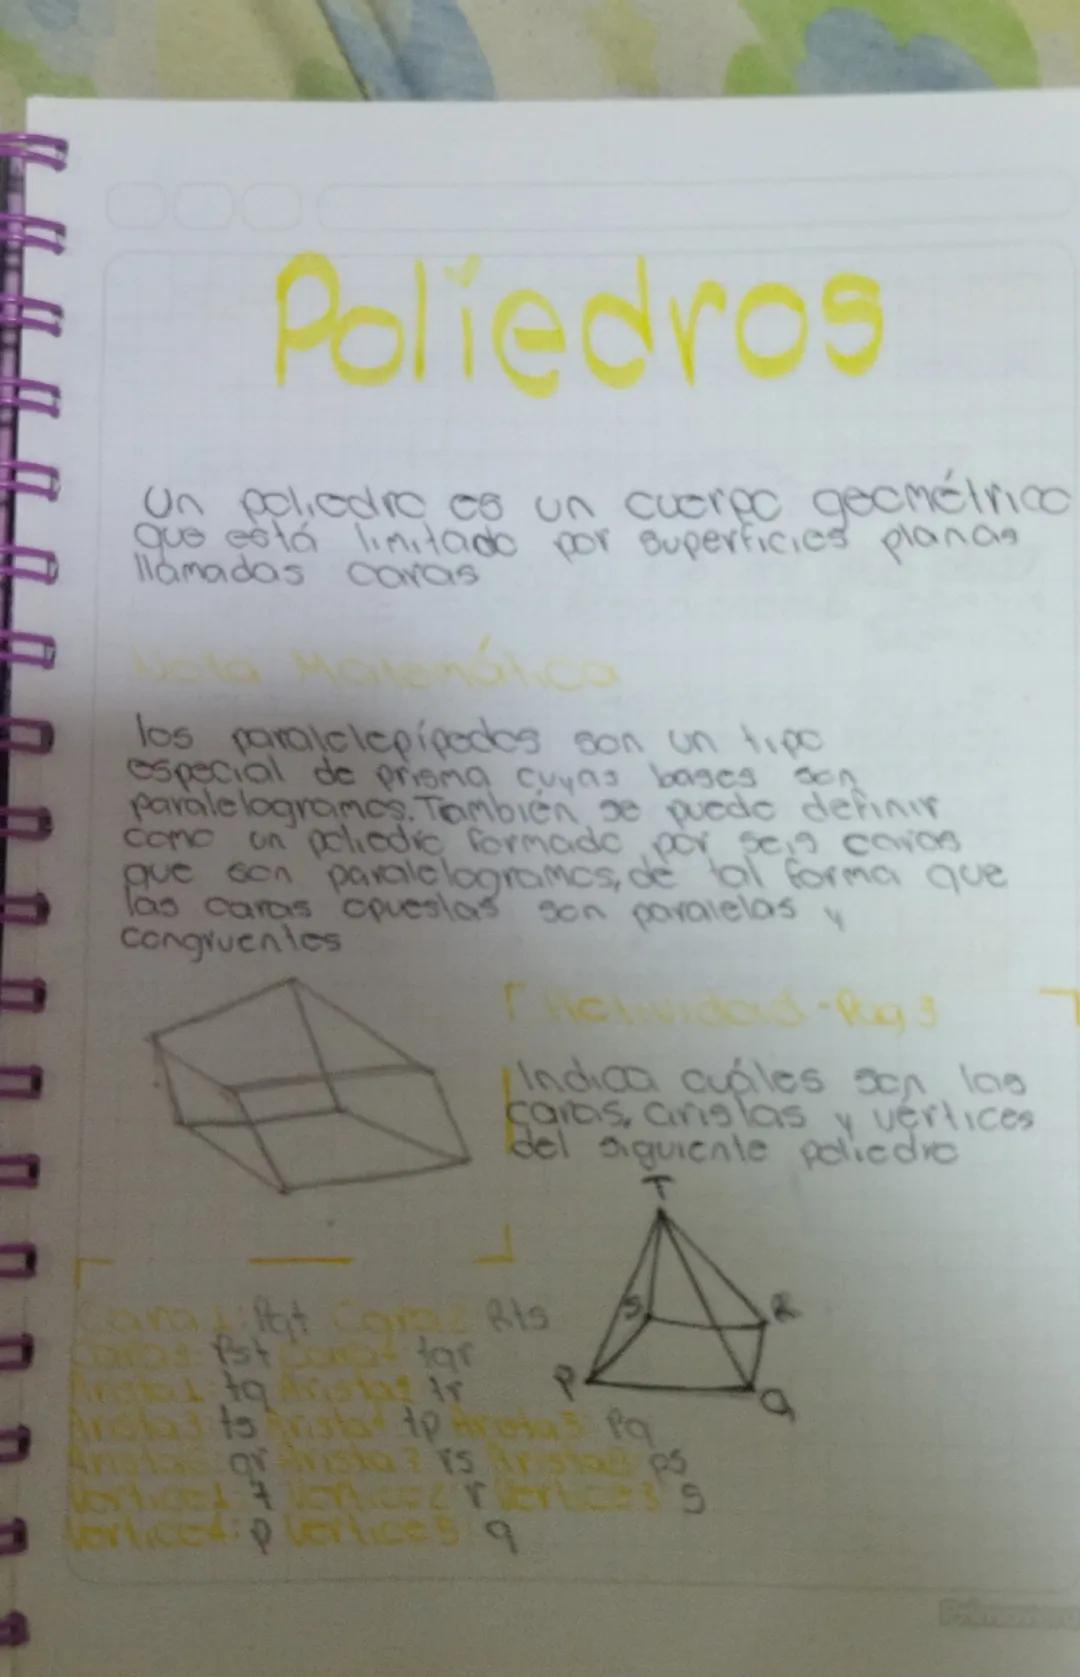 Poliedros
Un poliedro es un cuerpo geométrico
que está limitado por superficies planas
llamadas caras
Nota Matemática
los paralelepípedos son un tipo
especial de prisma cuyas bases son
paralelogramos. También se puede definir
como un poliedro formado por seis caras
que son paralelogramos, de tal forma que
las caras opuestas son paralelas y
congruentes
Actividad - Pag 3
Indica cuáles son las
caras, aristas y vértices
del siguiente poliedro
T
S R
P Q
Cara 1: Pqt Cara 2 Rts
Cara 3: Pst Cara 4 tqr
Arista 1 tq Arista 2 tr
Arista 3 ts Arista 4 tp Arista 5 Pq
Arista 6 qr Arista 7 rs Arista 8 ps
Vertice 1 t Vertice 2 r Vertice 3 s
Vertice 4: p Vertice 5 q